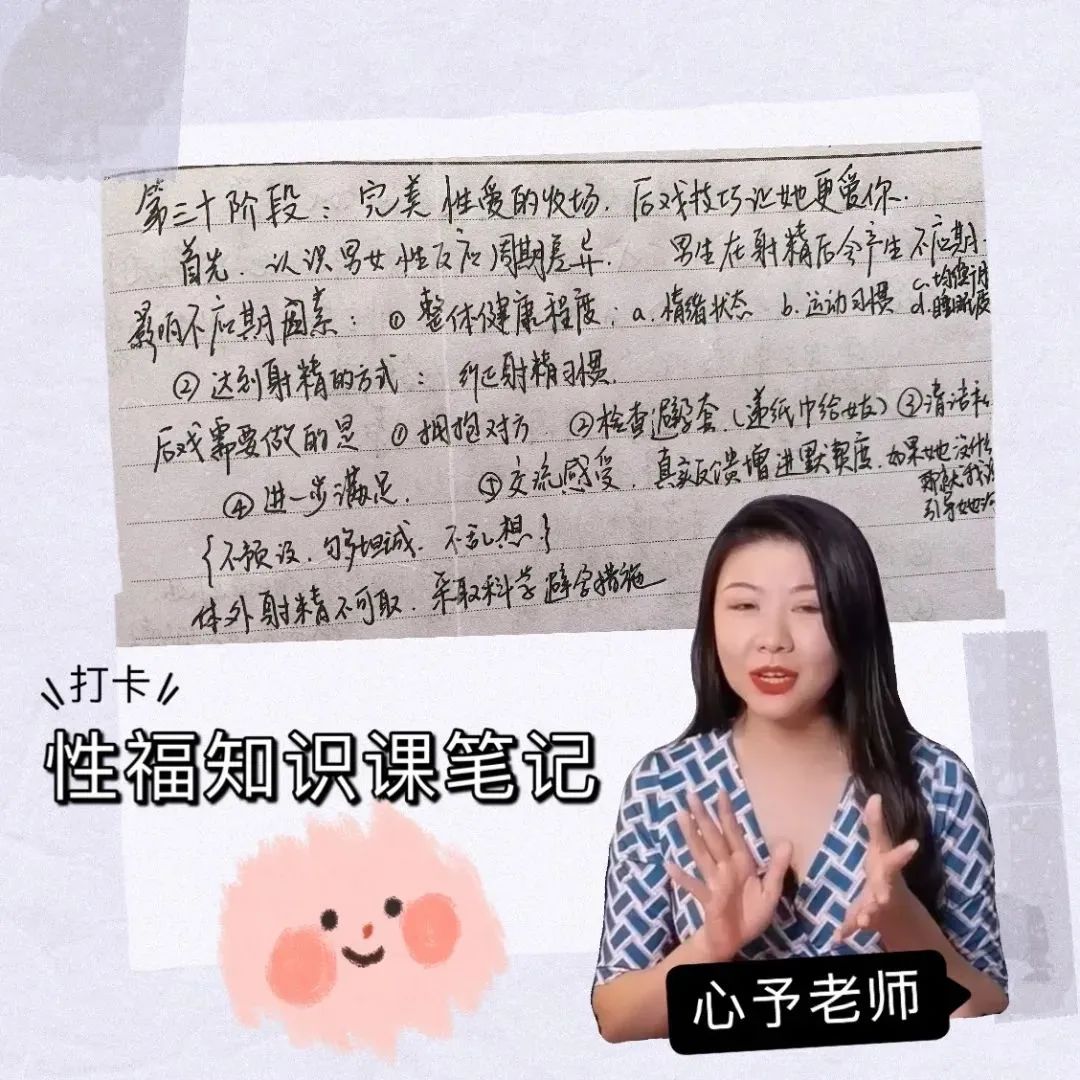 第三十阶段：完美性爱的收场，后戏技巧让她更爱你.
首先，认识男女性反应周期差异. 男生在射精后会产生不应期.
影响不应期因素：① 整体健康程度：a.情绪状态 b.运动习惯
② 达到射精的方式：纠正射精习惯.
后戏需要做的是 ①拥抱对方 ②检查避孕套.(递纸巾给女友) ③清洁私
④进一步满足. ⑤交流感受，真实反馈增进默契度.如果她没什么
引导她
{不预设，够坦诚，不乱想}
体外射精不可取，采取科学避孕措施
打卡
性福知识课笔记
心予老师